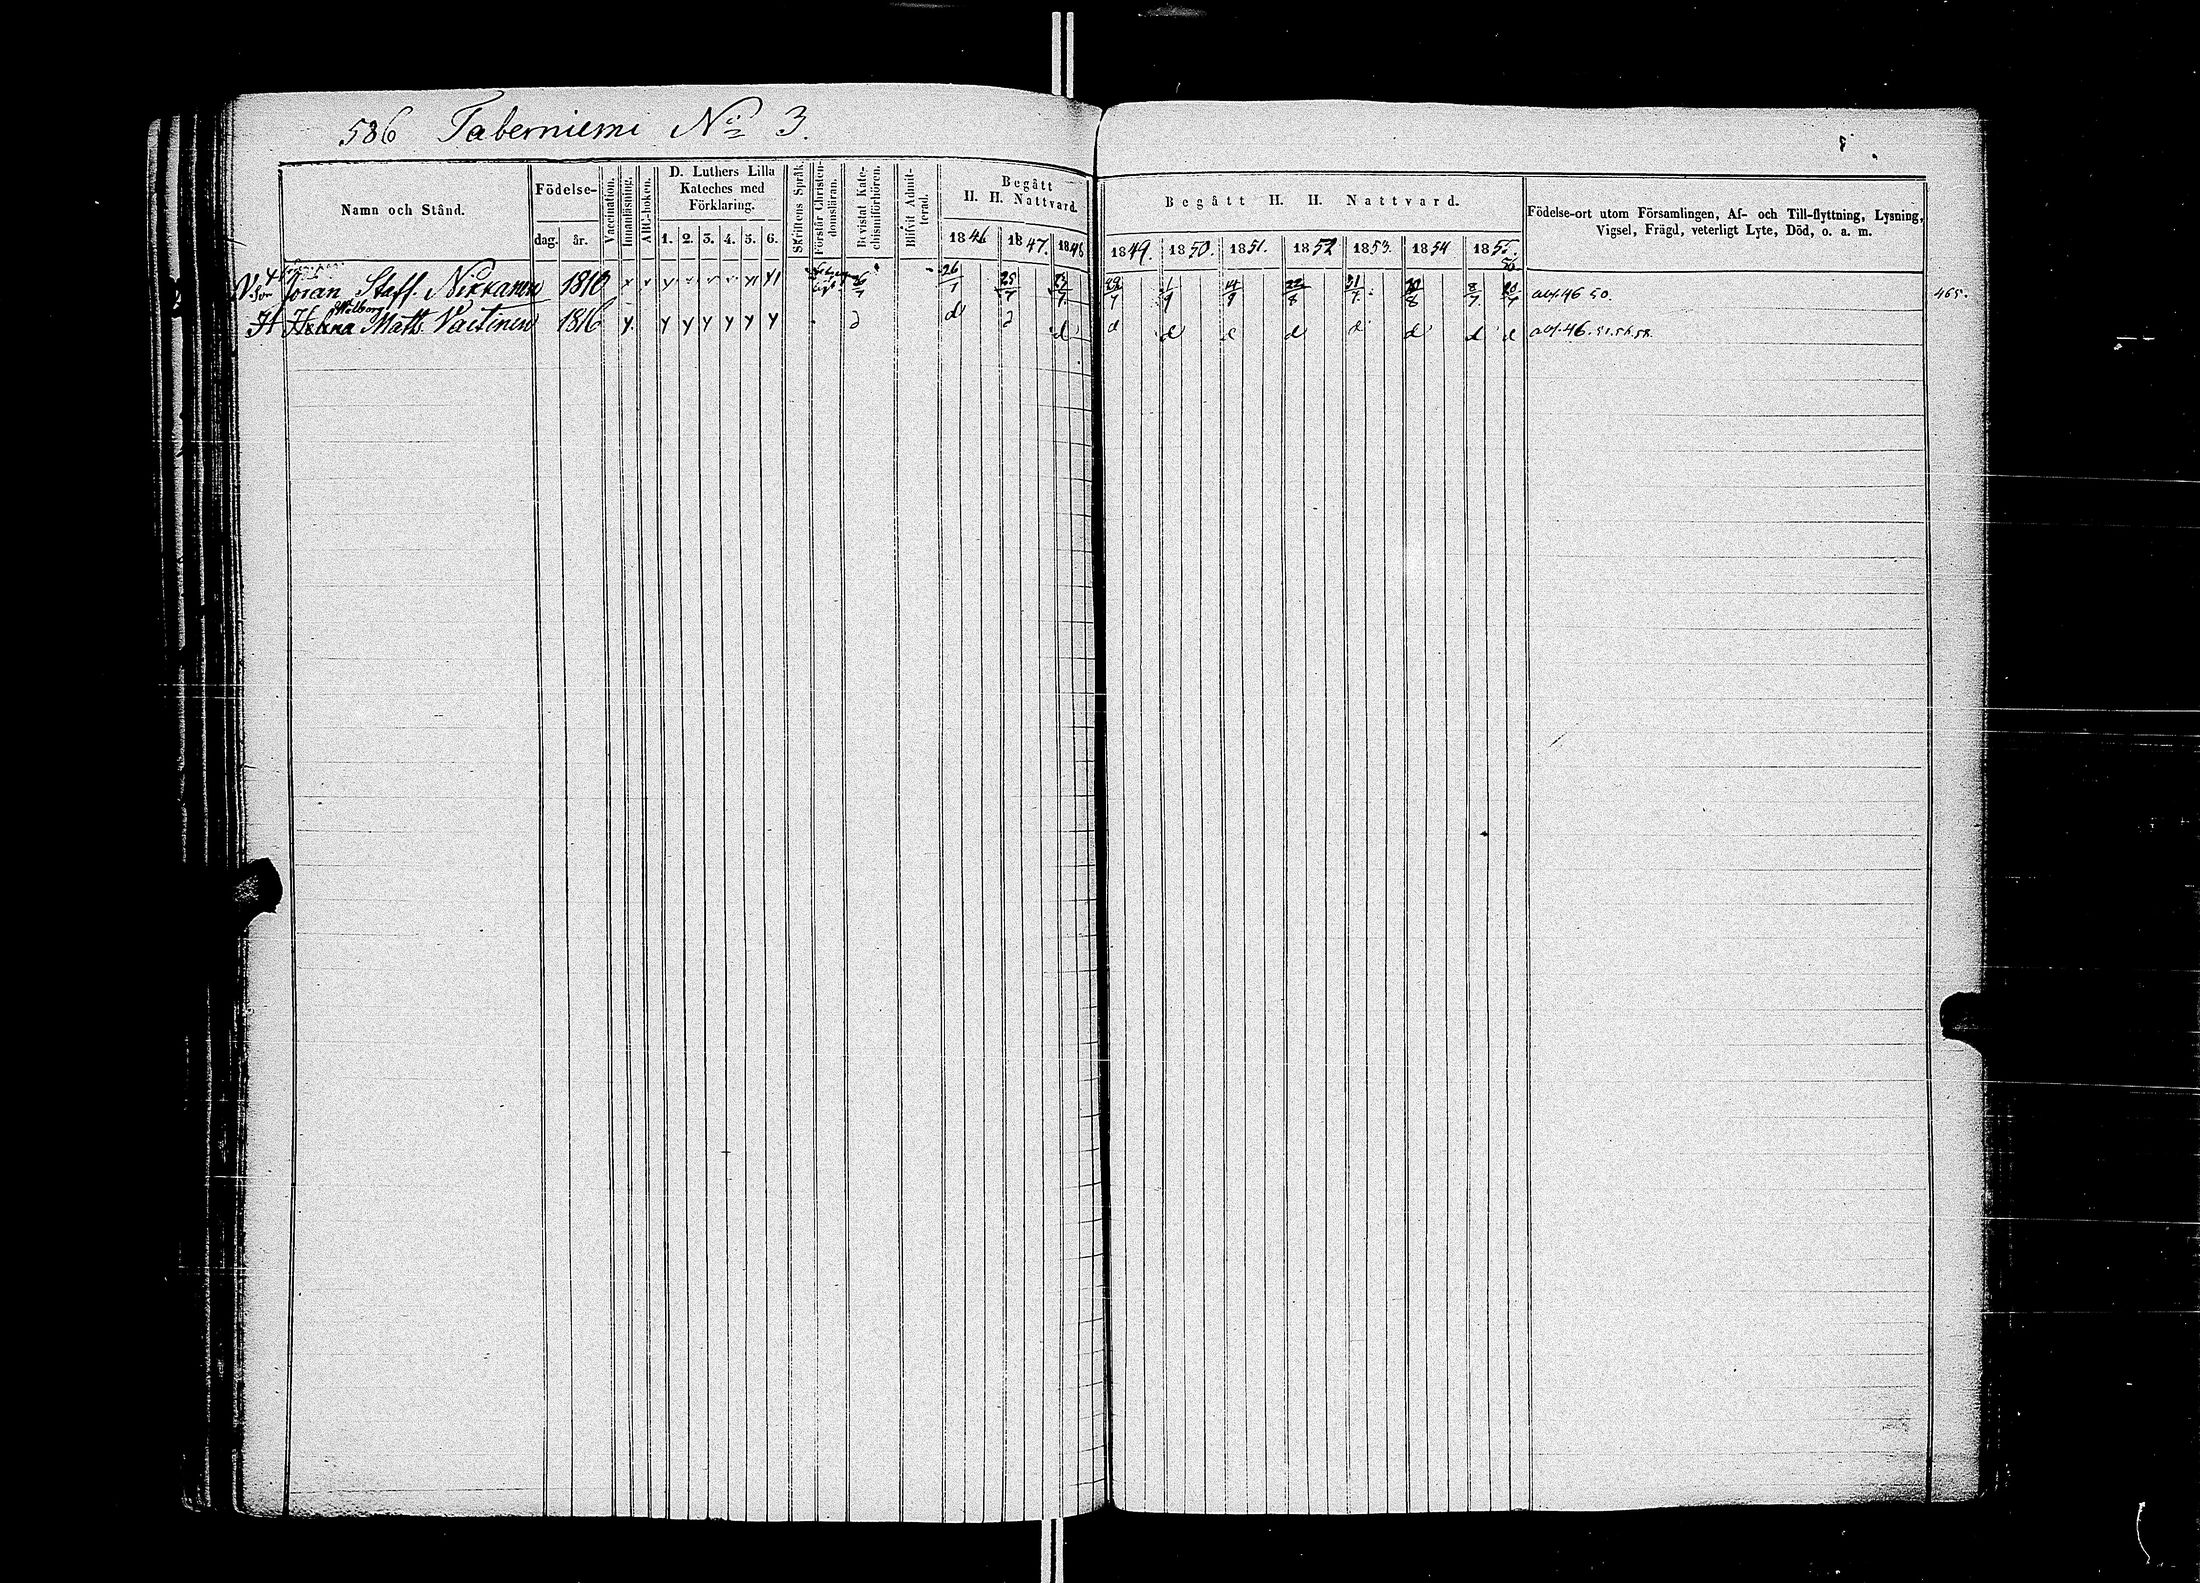 586 Taberniemi No 3.
Namn och Stånd.
Födelse-
dag. år.
Vaccination.
Innanläsning.
ABC-boken.
D. Luthers Lilla
Kateches med
Förklaring.
1. 2. 3. 4. 5. 6.
Skriftens Språk.
Förstår Christen-
domsläran.
Bevistat Kate-
chismiförhören.
Blifvit Admit-
terad.
Begått
H. H. Nattvard.
1846 1847. 1848
Begått H. H. Nattvard.
1849. 1850. 1851. 1852 1853. 1854 1855.
56.
Födelse-ort utom Församlingen, Af- och Till-flyttning, Lysning,
Vigsel, Frägd, veterligt Lyte, Död, o. a. m.
Göran Staff. Nikkanen 1816 26/7 25/7 1/9 22/8 31/7 8/7 46 50. 465.
H Helena Walborg Matts. Vaitinen 1816 d d d d d d d d d